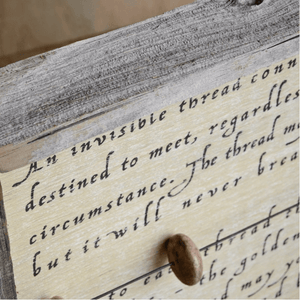 An invisible thread conn
destined to meet, regardles
circumstance. The thread m
but it will never brea
to each thread
the golden
may yo